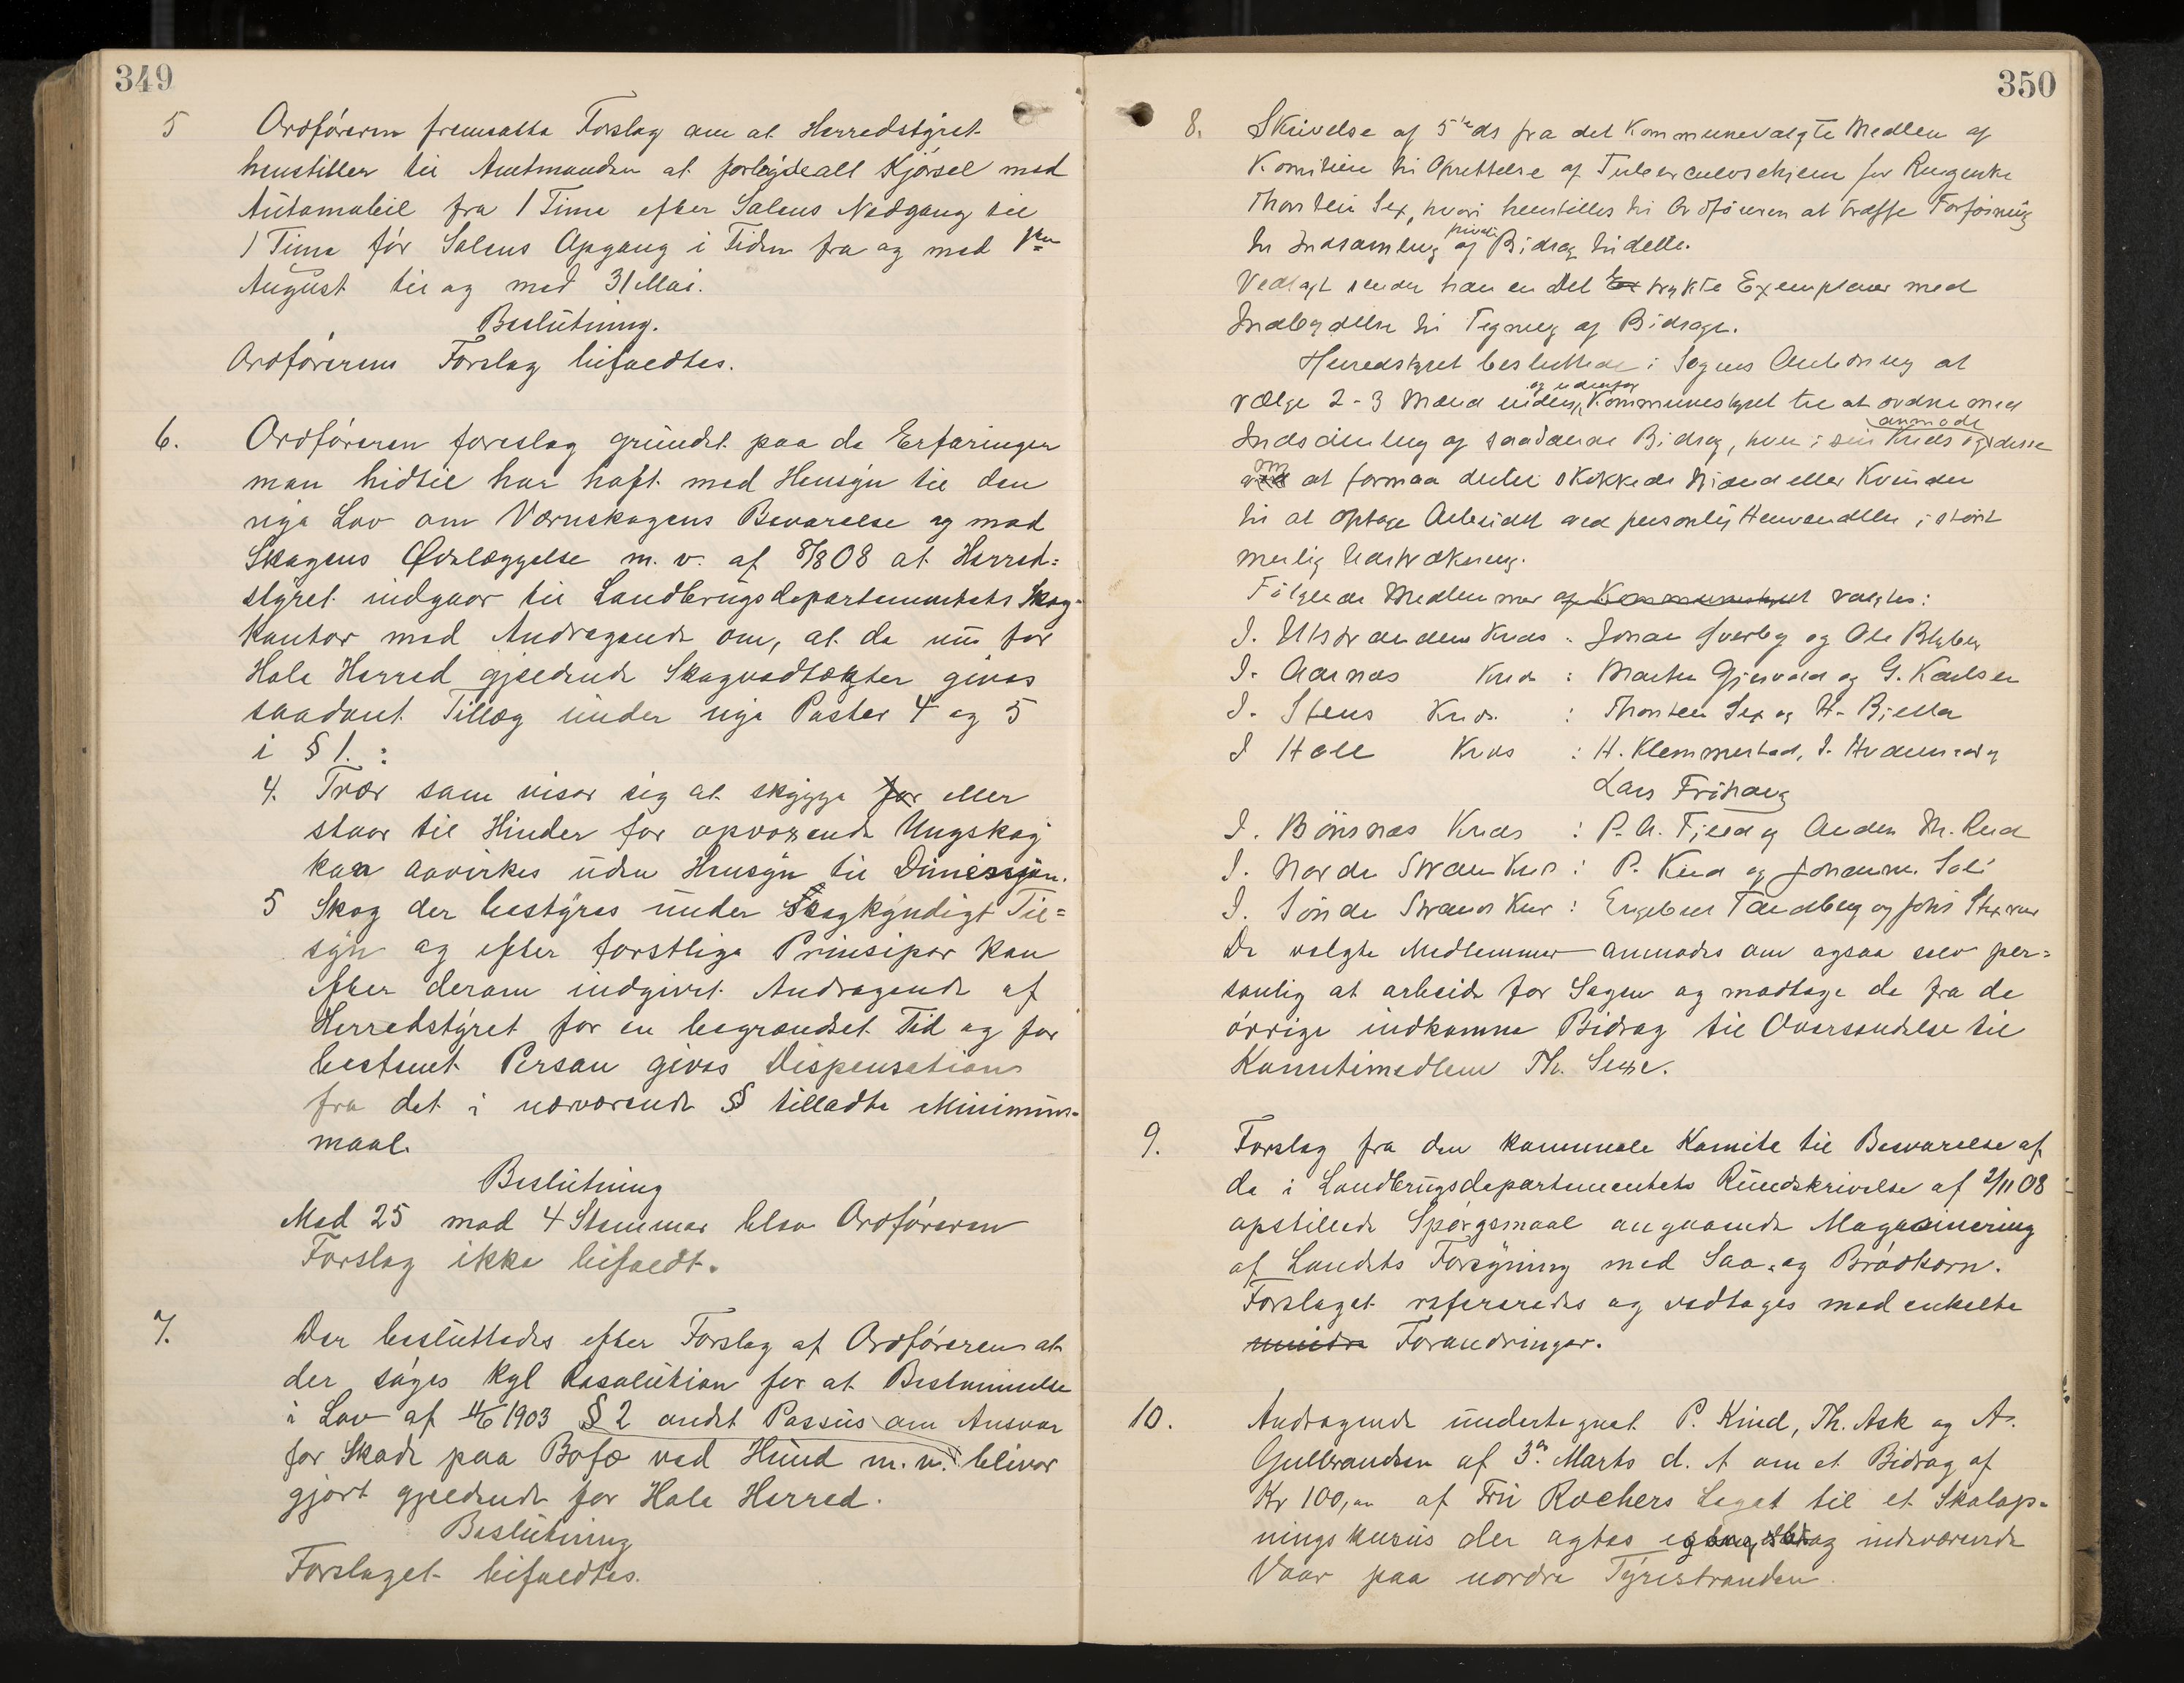 349
5 Ordføreren fremsatte Forslag om at Herredstyret
henstiller til Amtmanden at forbyde all Kjørsel med
Automobil fra 1 Time efter Solens Nedgang til
1 Time før Solens Opgang i Tiden fra og med 1ste
August til og med 31 Mai.
Beslutning.
Ordførerens Forslag bifaldtes.
6. Ordføreren foreslog grundet paa de Erfaringer
man hidtil har haft med Hensyn til den
nye Lov om Værnskogens Bevarelse og mod
Skogens Ødelæggelse m. v. af 8/8 08 at Herred=
styret indgaar til Landbrugsdepartementets Skog-
kontor med Andragende om, at de nu for
Hole Herred gjældende Skogvedtægter gives
saadant Tillæg under nye Poster 4 og 5
i § 1. :
4. Trær som viser sig at skygge for eller
staar til Hinder for opvoxende Ungskog
kan avvirkes uden Hensyn til Dimesjon.
5 Skog der bestyres under Skogkyndigt Til=
syn og efter forstlige Prinsiper kan
efter derom indgivet Andragende af
Herredstyret for en begrændset Tid og for
bestemt Person gives Dispensation
fra det i nærværende § tilladte Minimums-
maal.
Beslutning
Med 25 mod 4 Stemmer blev Ordføreren
Forslag ikke bifaldt.
7. Der besluttedes efter Forslag af Ordføreren at
der søges Kgl Resolution for at Bestemmelse
i Lov af 1903 § 2 andet Passus om Ansvar
for Skade paa Bofæ ved Hund m. v. bliver
gjort gjældende for Hole Herred.
Beslutning
Forslaget bifaldtes.
350
8. Skrivelse af 5te ds fra det Kommunevalgte Medlem af
Komiteen til Oprettelse af Tuberculoschjem for Ringerike
Thorstein Sex, hvori henstilles til Ordføreren at træffe Forføining
til Indsamling af private Bidrag til dette.
Vedlagt sender han en Del trykte Exemplarer med
Indbydelse til Tegning af Bidrage.
Herredstyret besluttede i Sagens Anledning at
vælge 2-3 Mænd inden og udenfor Kommunestyret til at ordne med
Indsamling af saadanne Bidrag, hver i sin Kreds og anmode disse
om at formaa dertil skikkede Mænd eller Kvinder
til at optage Arbeidet ved personlig Henvendelse i størst
mulig Udstrækning.
Følgende Medlemmer af Kommunestyret valgtes:
I. Utstrandens Kreds : Johan Sverby og Ole Blyberg
I. Aarnes Kreds : Martin Gjesvold og G. Karlsen
I. Stens Kreds : Thorstein Sex og H. Bjella
I Hole Kreds : H. Klemmerstad, I. og
Lars Frøhaug
I. Bønsnes Kreds : P. A. Fjeld og Anders M. Rud
I. Nordre Strand Kreds : P. Kind og Johan M. Soli
I. Søndre Strands Kreds : Engebret Tandberg og Johs
De valgte Medlemmer anmodes om ogsaa selv per=
sonlig at arbeide for Sagen og modtage de fra de
øvrige indkomne Bidrag til Oversendelse til
Komitemedlem Th. Sexe.
9. Forslag fra den kommunale Komite til Besvarelse af
de i Landbrugsdepartementets Rundskrivelse af 2/11 08
opstillede Spørgsmaal angaaende Magasinering
af Landets Forsyning med Saa- og Brødkorn.
Forslaget refereredes og vedtages med enkelte
mindre Forandringer.
10. Andragende undertegnet P. Kind, Th. Ask og A.
Gulbrandsen af 3de Marts d. A om et Bidrag af
Kr 100,00 af Fru Rochers Legat til et Skolop-
ningskursus der agtes indeværende
Vaar paa nordre Tyristranden.